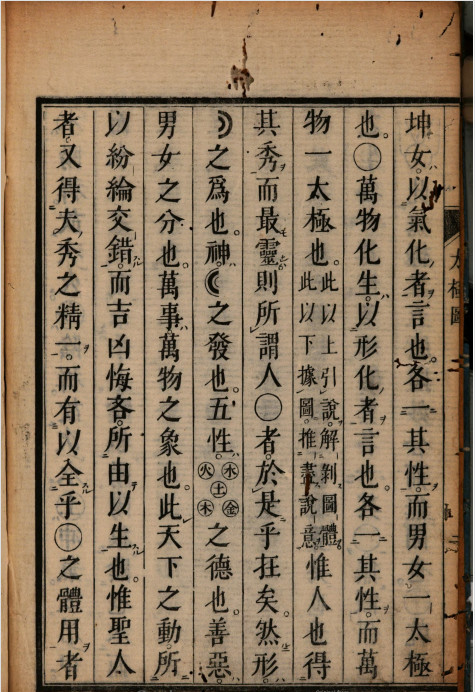 太極圖
坤女。以氣化者言也。各一其性。而男女一太極
也。○萬物化生。以形化者言也。各一其性。而萬
物一太極也。此以上引說解剝圖體此以下據圖推盡說意惟人也得
其秀而最靈則所謂人○者。於是乎在矣。然形。
☽之爲也。神。☾之發也。五性。水火土金木之德也。善惡。
男女之分也。萬事。萬物之象也。此天下之動。所
以紛綸交錯。而吉凶悔吝。所由以生也。惟聖人
者。又得夫秀之精一。而有以全乎○之體用者